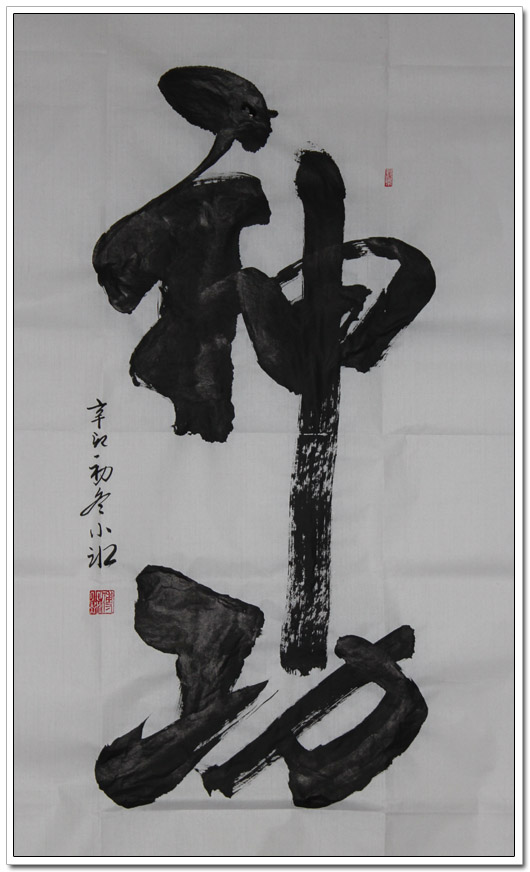 神功
辛卯初冬小冰